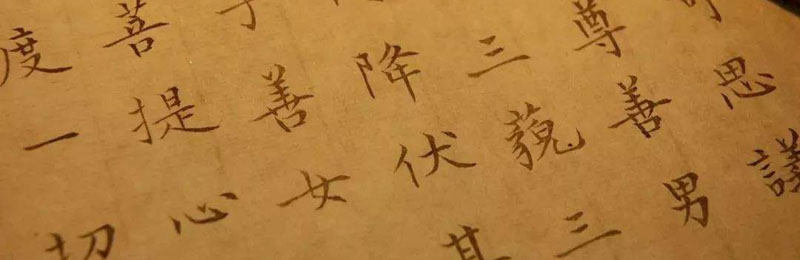 思議
尊善男
三藐三
降伏其
善女
菩提心
度一切